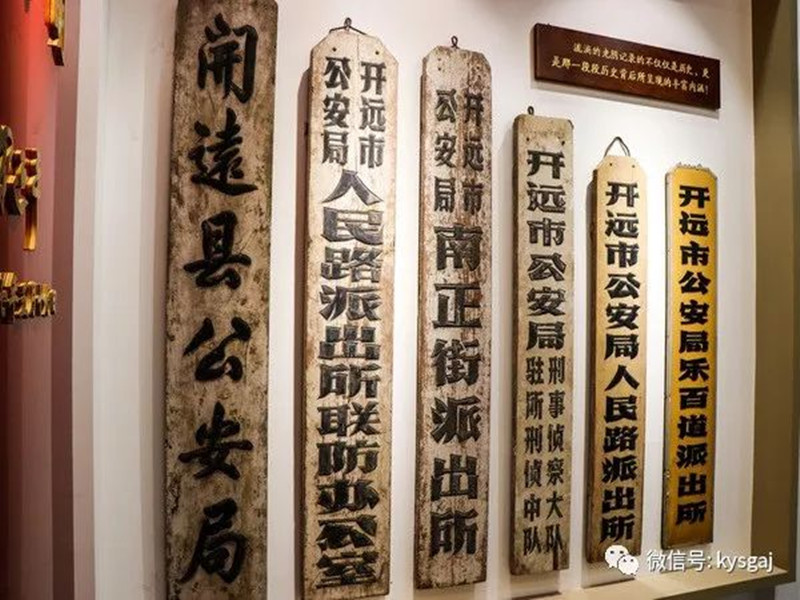 開遠县公安局
开远市
公安局
人民路派出所联防办公室
开远市
公安局
南正街派出所
开远市公安局
刑事侦察大队
驻所刑侦中队
开远市公安局人民路派出所
开远市公安局乐百道派出所
流淌的光阴记录的不仅仅是历史，更
是那一段段历史背后所呈现的丰富内涵！
微信号: kysgaj